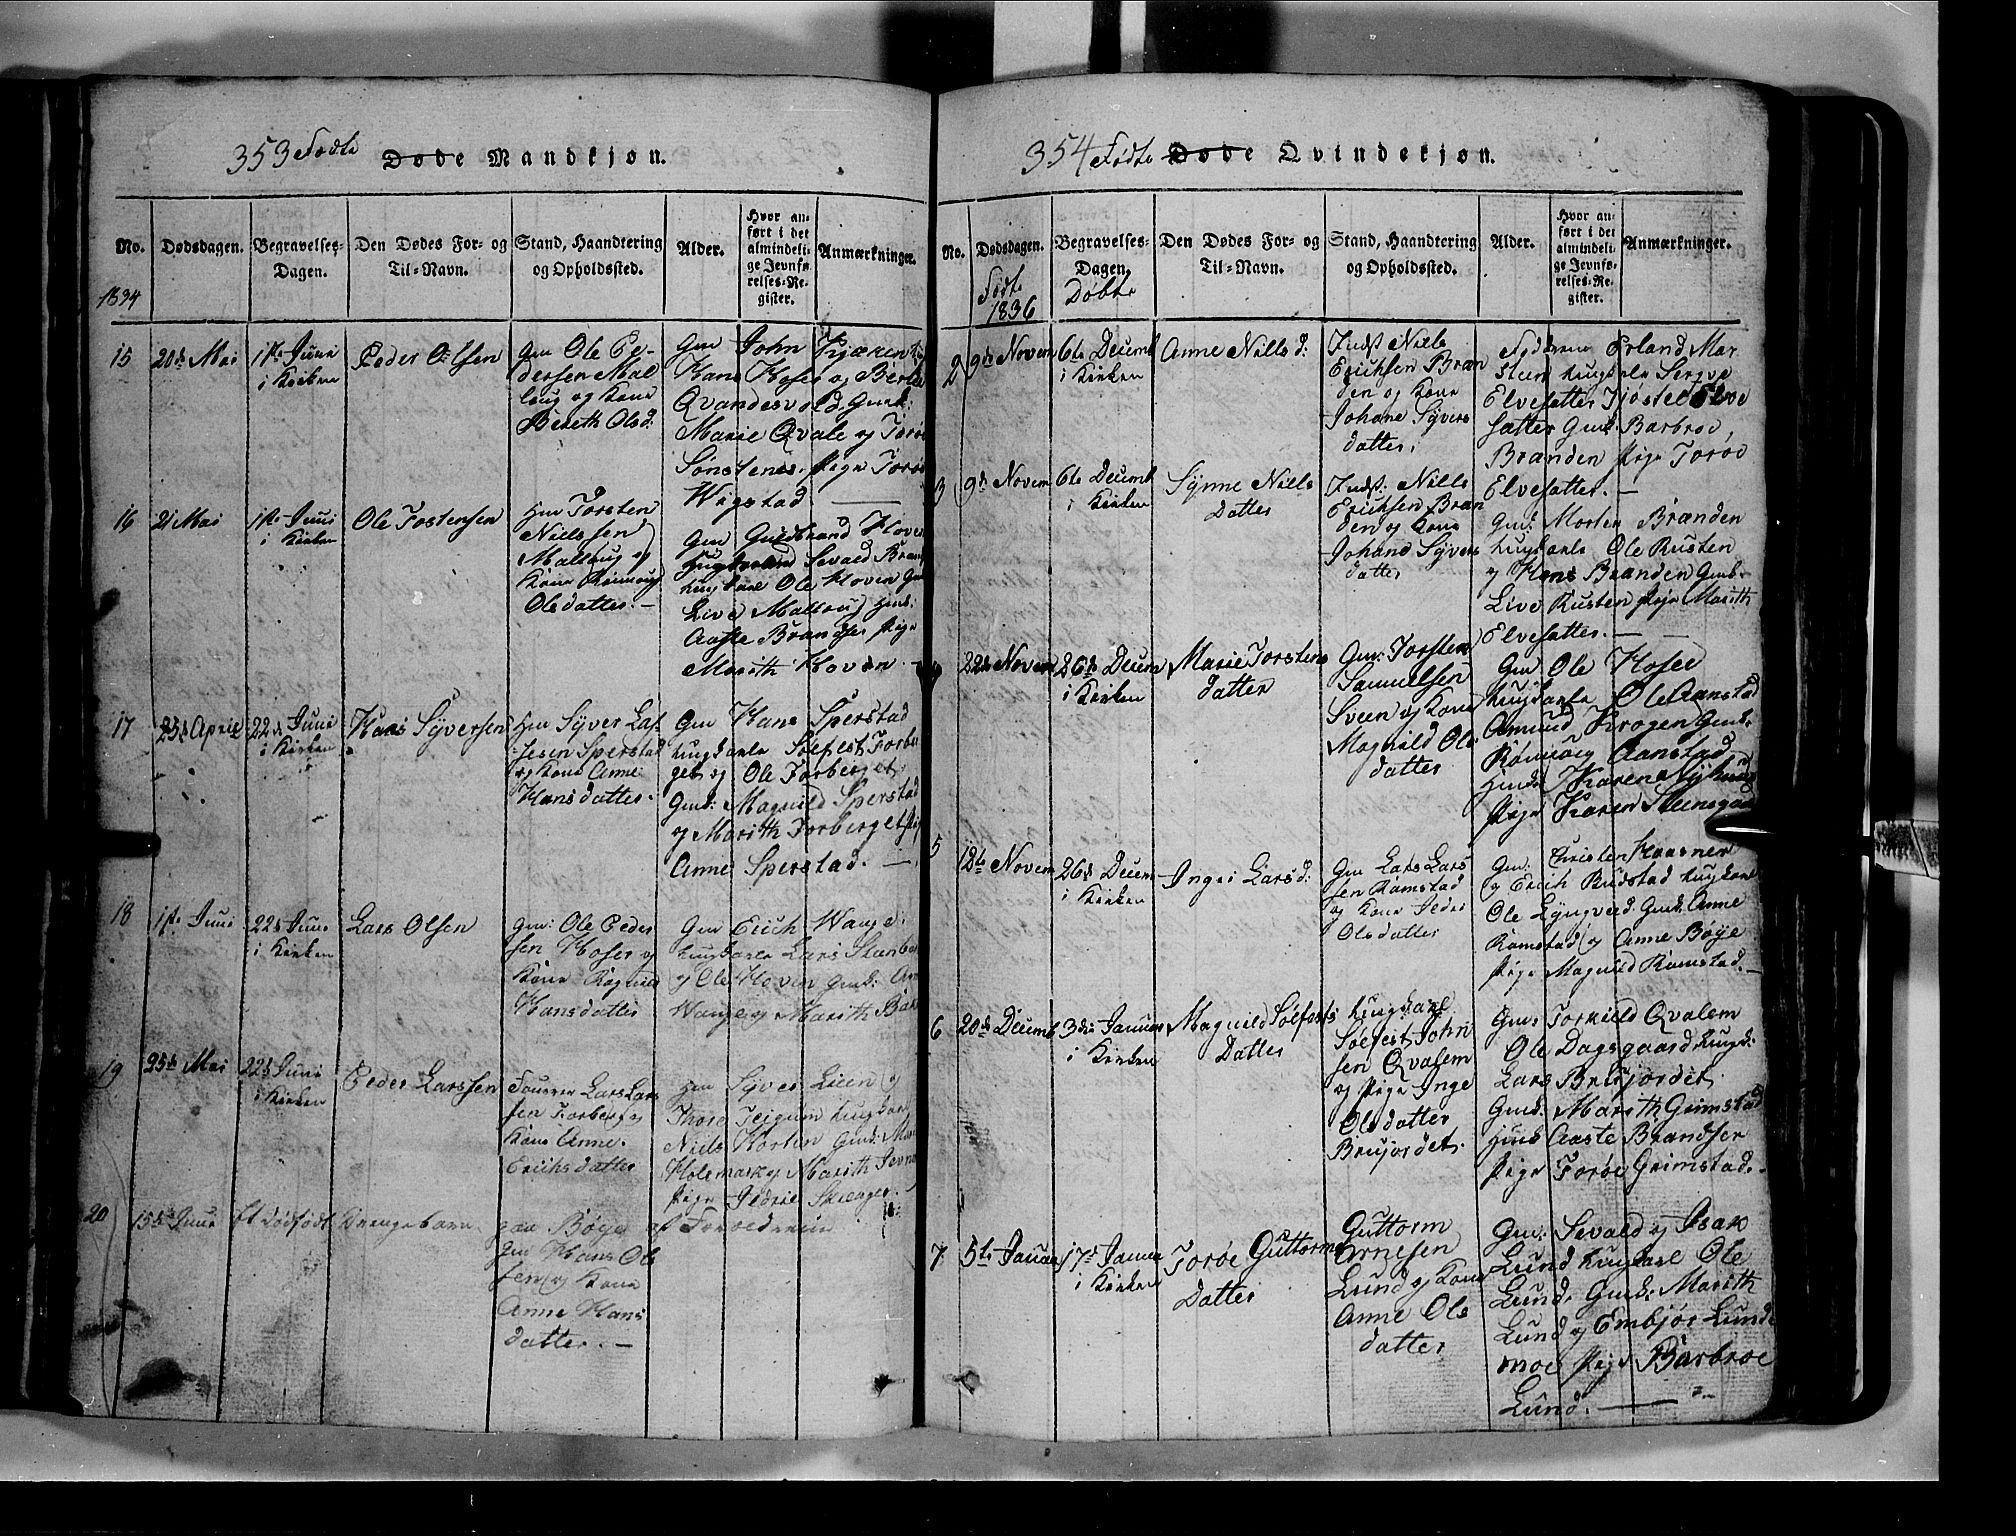 353 Fødte Døde Mandkjøn.
No.
Dødsdagen.
Begravelses-
Dagen.
Den Dødes For- og
Til-Navn.
Stand, Haandtering
og Opholdssted.
Alder.
Hvor an-
ført i det
almindeli-
ge Jevnfø-
relses-Re-
gister.
Anmærkninger.
1834
15
20de Mai
1ste Juni
i Kirken
Peder Olsen
Gm Ole Pe-
dersen Mal-
laug og Kone
Bereth Olsd:
Gm John Kjæren
Hans Hofer og Berte
Qvandesvold, Gmk:
Marie Qvale og Torøe
Sønstenes. Pige Torøe
Wigstad
16
21 Mai
1ste Juni
i Kirken
Ole Tostensen
Hm Torsten
Nielssen
Mallaug og
Kone Rønnaug
Olsdatter. —
Gm Guldbrand Hoven
Sevald Brand
ungkarle Ole Hoven Gm
Live Mallaug Hmk:
Aaste Brandser Pige
Marith Hoven. —
17
23de April
22de Juni
i Kirken
Hans Syversen
Hm Syver Las-
sesen Sperstad
og Kone Anne
Hansdatter.
Gm Hans Sperstad
ungkarle Solfest Forber
get og Ole Forberget.
Gmk: Magnild Sperstad
og Marith Forberget Pig
Anne Sperstad. —
18
1ste Juni
22de Juni
i Kirken
Lars Olsen
Gm: Ole Peder
sen Hofer og
Kone Ragnild
Hansdatter
Gm Erich Wange:
ungkarle Lars Stanber
og Ole Hoven Gmk: An
Wange og Marith Bak
19
25de Mai
22de Juni
i Kirken
Peder Larssen
Lars Lars
sen Forberg og
Kone Anne
Erichsdatter
Hm Syver Lien og
Thore Teigum ungkar
Niels Horten Gmk: Mar
Holemark og Marith Jevne
Pige Jldrie Skienger.
20
15de Juni
Et dødfødt Drengebarn
paa Bøye af Foreldrene
Gm Hans Ol
sen og Kone
Anne Hans
datter. —
354 Fødte Døde Qvindekjøn.
No.
Dødsdagen.
Fødte
1836
Begravelses-
Dagen.
Døbte
Den Dødes For- og
Til-Navn.
Stand, Haandtering
og Opholdssted.
Alder.
Hvor an-
ført i det
almindeli-
ge Jevnfø-
relses-Re-
gister.
Anmærkninger.
2
9de Novem
6te Decemb
i Kirken
Anne Nills d:
Indst Niels
Erichsen Bræn
den og Kone
Johane Syvers
datter,
Fadderne Erland Mar
stein ungkarle Sergve
Elvesatter Tjøstel Elve
satter Gmk: Barbroe,
Branden Pige Torøe
Elvesatter. —
3
9de Novem
6te Decemb
i Kirken
Synne Niels
Datter
Indst. Niells
Erichsen Bræn
den og Kone
Johand Syvers
datter
Gm: Morten Brænden
ungkarle Ole Rusten
og Hans Branden Gmk.
Live Rusten Pige Marith
Elvesatter. —
4
22de Novem
26de Decem
i Kirken
Marie Torstens
datter
Gm: Torsten
Samuelsen
Sveen og Kone
Magnild Ols
datter
Gm Ole Hofer
ungkarle Ole Aanstad
Amund Krogen Gmk.
Rønnøey Aanstad
Hmk: Karen Nyhuus
Pige Karen Steensgaar
5
12te Novem
26de Decem
i Kirken
Inger Larsd:
Gm Lars Lars
sen Ramstad
og Kone Jldri
Olsdatter
Gm: Christen Haasner
og Erich Rudstad ungkarl
Ole Lyngved. Gmk: Anne
Ramstad og Anne Bøye
Pige Magnild Ramstad. —
6
20de Decemb
3die Januar
i Kirken
Magnild Solfests
Datter
Ungkarl
Solfest John
sen Qvalem
og Pige Inge
Olsdatter
Brujordet.
Gm: Torkield Qvalem
Ole Dagsgaard ungk:
Lars Brujordet.
Gmk: Marith Grimstad
Hmk Aaste Brandser
Pige Torøe Grimstad. -
7
5te Januar
17de Januar
i Kirken
Torøe Guttorms
Datter
Guttorm
Arnesen
Lund og Kone
Anne Ols
datter
Gm: Sevald og Isak
Lund ungkarl Ole
Lund. Gmk: Marith
Lund og Embjør Lunde
moe Pige Barbroe
Lund. —